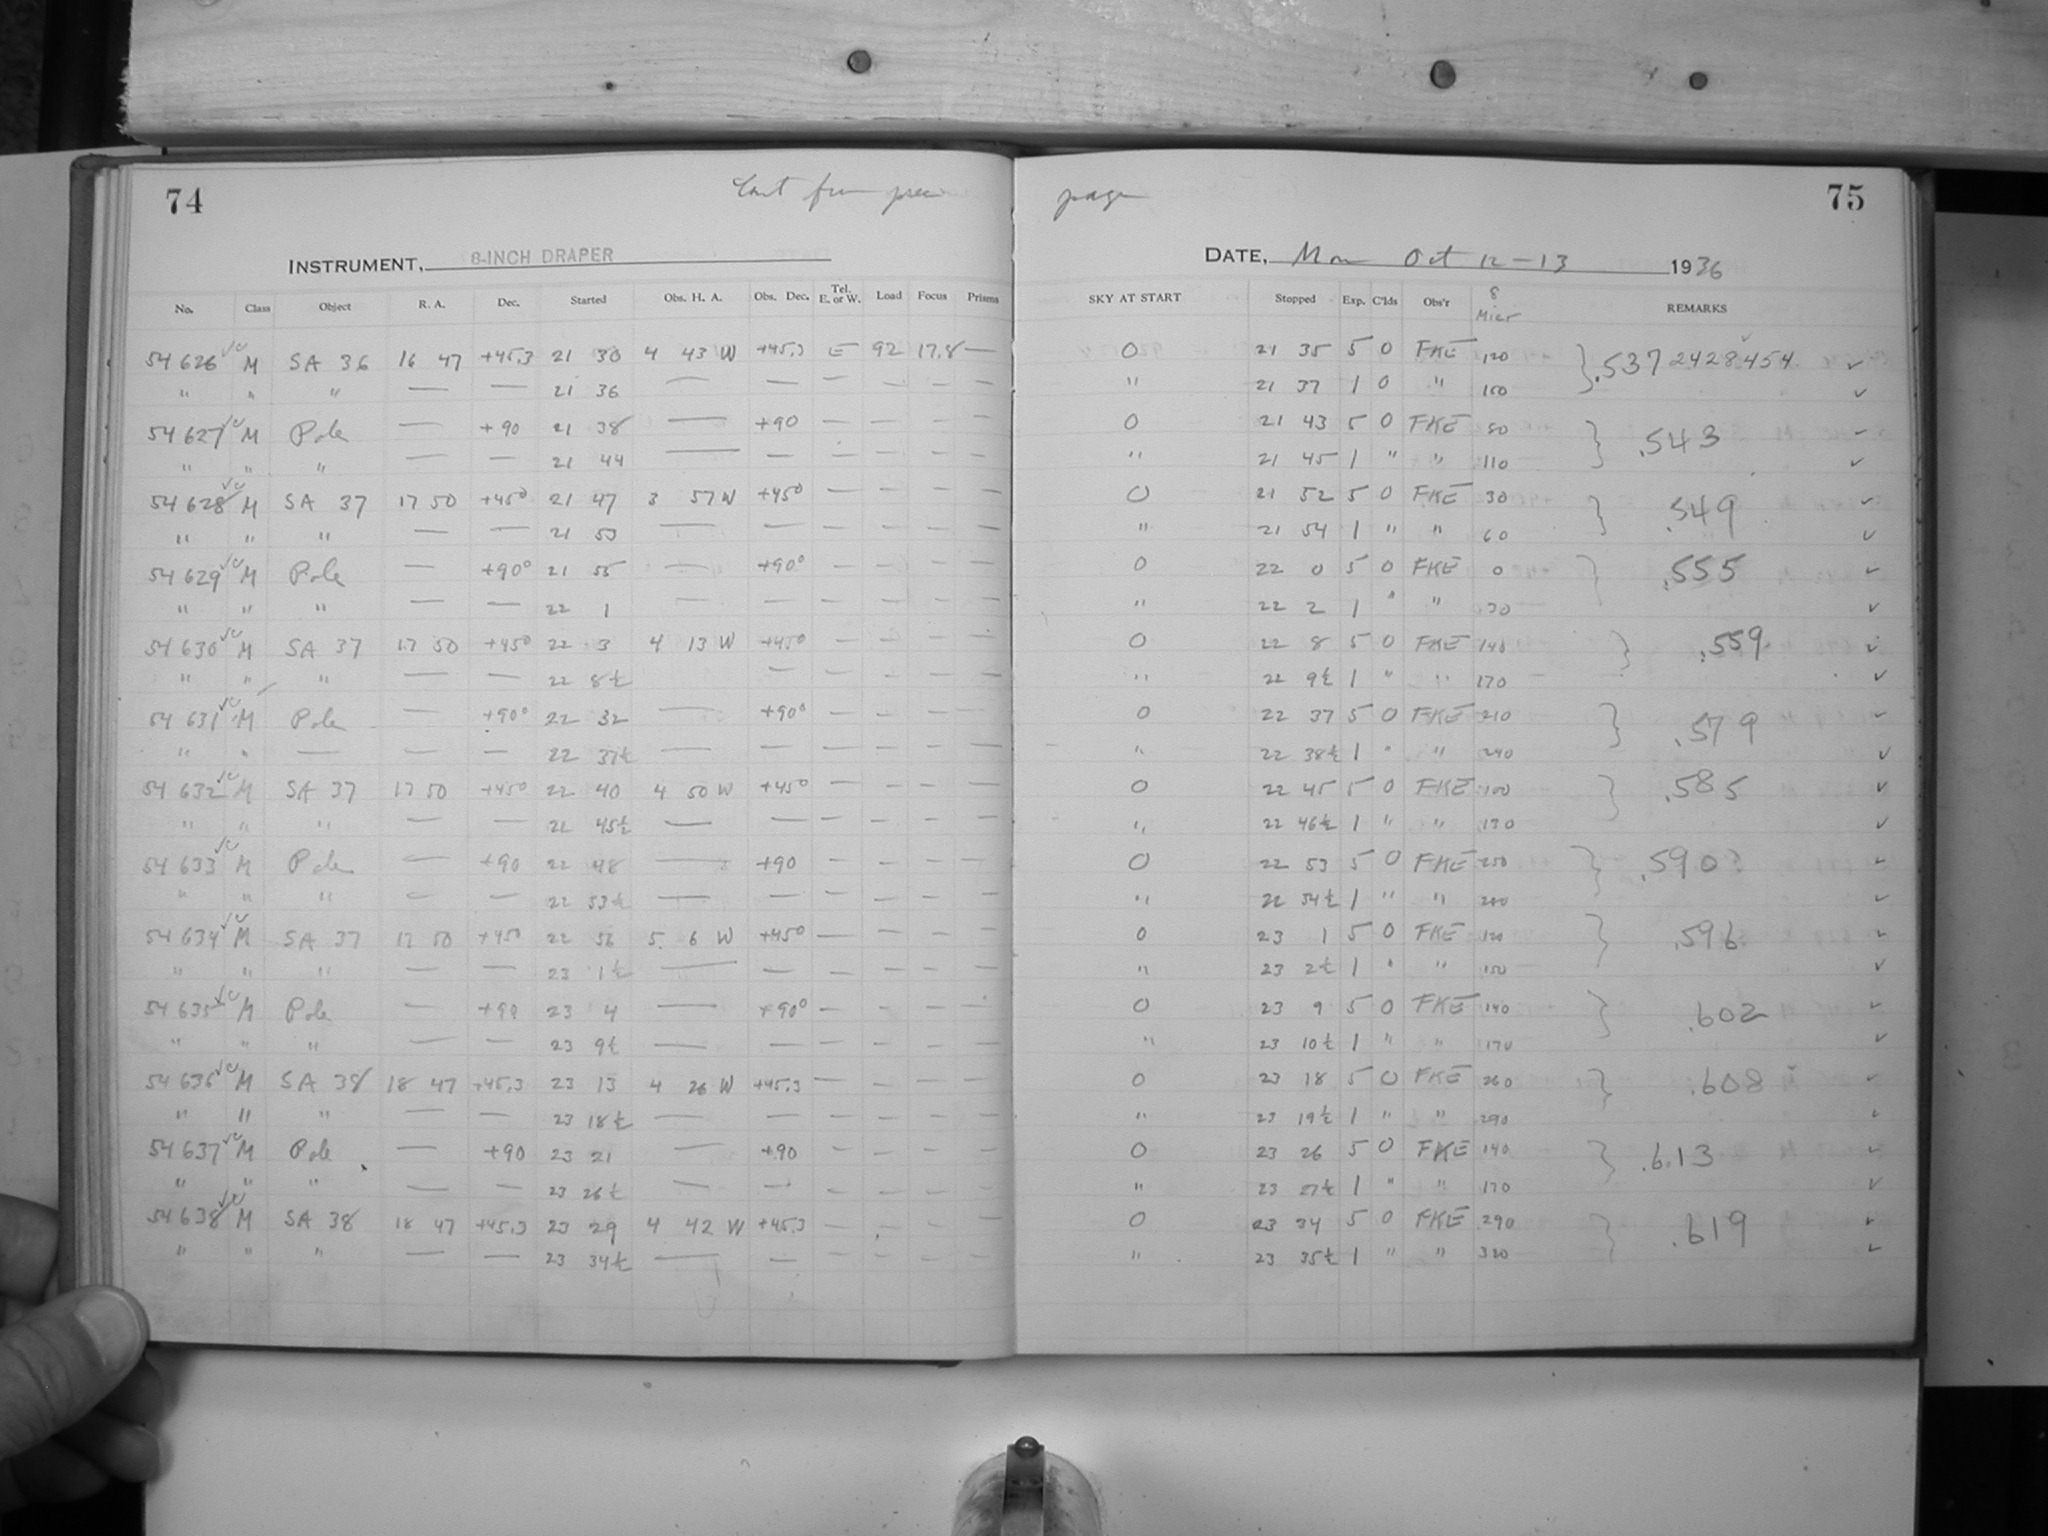 74 Cont from prev page 75
INSTRUMENT, 8-INCH DRAPER DATE, Mon Oct 12-13 1936
No. Class Object R. A. Dec. Started Obs. H. A. Obs. Dec. Tel. E. or W. Load Focus Prisms SKY AT START Stopped Exp. C'lds Obs'r 8 Micr REMARKS
54 626 M SA 36 16 47 +45.3 21 30 4 43 W +45.3 E 92 17.8 — 0 21 35 5 0 FKE 120 } .537 2428454 ✓
" " " — — 21 36 — — — — — — " 21 37 1 0 " 150 ✓
54 627 M Pole — +90 21 38 — +90 — — — — 0 21 43 5 0 FKE 80 } .543 ✓
" " " — — 21 44 — — — — — — " 21 45 1 " " 110 ✓
54 628 M SA 37 17 50 +45° 21 47 3 57 W +45° — — — — 0 21 52 5 0 FKE 30 } .549 ✓
" " " — — 21 53 — — — — — — " 21 54 1 " " 60 ✓
54 629 M Pole — +90° 21 55 — +90° — — — — 0 22 0 5 0 FKE 0 } .555 ✓
" " " — — 22 1 — — — — — — " 22 2 1 " " 30 ✓
54 630 M SA 37 17 50 +45° 22 3 4 13 W +45° — — — — 0 22 8 5 0 FKE 140 } .559 ✓
" " " — — 22 8½ — — — — — " 22 9½ 1 " " 170 ✓
54 631 M Pole — +90° 22 32 — +90° — — — — 0 22 37 5 0 FKE 210 } .579 ✓
" " — — — 22 37½ — — — — — — " 22 38½ 1 " " 240 ✓
54 632 M SA 37 17 50 +45° 22 40 4 50 W +45° — — — — 0 22 45 5 0 FKE 100 } .585 ✓
" " " — — 22 45½ — — — — — — " 22 46½ 1 " " 130 ✓
54 633 M Pole — +90 22 48 — +90 — — — — 0 22 53 5 0 FKE 250 } .590 ✓
" " " — — 22 53½ — — — — — — " 22 54½ 1 " " 280 ✓
54 634 M SA 37 17 50 +45° 22 56 5 6 W +45° — — — — 0 23 1 5 0 FKE 120 } .596 ✓
" " " — — 23 1½ — — — — — — " 23 2½ 1 " " 150 ✓
54 635 M Pole — +90 23 4 — +90° — — — — 0 23 9 5 0 FKE 140 } .602 ✓
" " " — — 23 9½ — — — — — — " 23 10½ 1 " " 170 ✓
54 636 M SA 38 18 47 +45.3 23 13 4 26 W +45.3 — — — — 0 23 18 5 0 FKE 260 } .608 ✓
" " " — — 23 18½ — — — — — — " 23 19½ 1 " " 290 ✓
54 637 M Pole — +90 23 21 — +90 — — — — 0 23 26 5 0 FKE 140 } .613 ✓
" " " — — 23 26½ — — — — — — " 23 27½ 1 " " 170 ✓
54 638 M SA 38 18 47 +45.3 23 29 4 42 W +45.3 — — — — 0 23 34 5 0 FKE 290 } .619 ✓
" " " — — 23 34½ — — " 23 35½ 1 " " 320 ✓